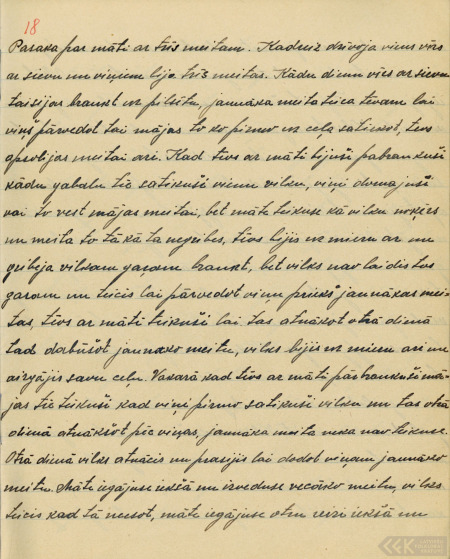 18
Pasaka par māti ar trīs meitam. Kadreiz dzivoja viens vīrs
ar sievu un viņiem bija trīs meitas. Kādu dienu vīrs ar sievu
taisijas braukt uz pilsētu, jaunāka meita teica tēvam lai
viņš pārvedot tai mājas to ko pirmo uz ceļa satiekot, tēvs
apsolijas meitai arī. Kad tēvs ar māti bijuši pabraukuši
kādu gabalu tie satikuši vienu vilku, viņi domajuši
vai to vest mājas meitai, bet māte teikuse kā vilku
un meita to tā kā tā negribes, tēvs bijis uz mieru ar un
gribeja vilkam gaŗam braukt, bet vilks nav laidis tos
garam un teicis lai pārvedot viņu priekš jaunākas mei-
tas, tēvs ar māti teikuši lai tas atnākot otrā dienā
tad dabūšot jaunako meitu, vilks bijis uz mieru ari un
aizgājis savu ceļu. Vakarā kad tēvs ar māti pārbraukuši mā-
jas tie teikuši kad viņi pirmo satikuši vilku un tas otrā
dienā atnākšot pēc viņas, jaunāka meita neka nav teikuse.
Otrā dienā vilks atnācis un prasijis lai dodot viņam jaunāko
meitu. Māte iegājuse iekšā un izveduse vecāko meitu, vilks
teicis kad tā neesot, māte iegājuse otru reizi iekšā un
LFK